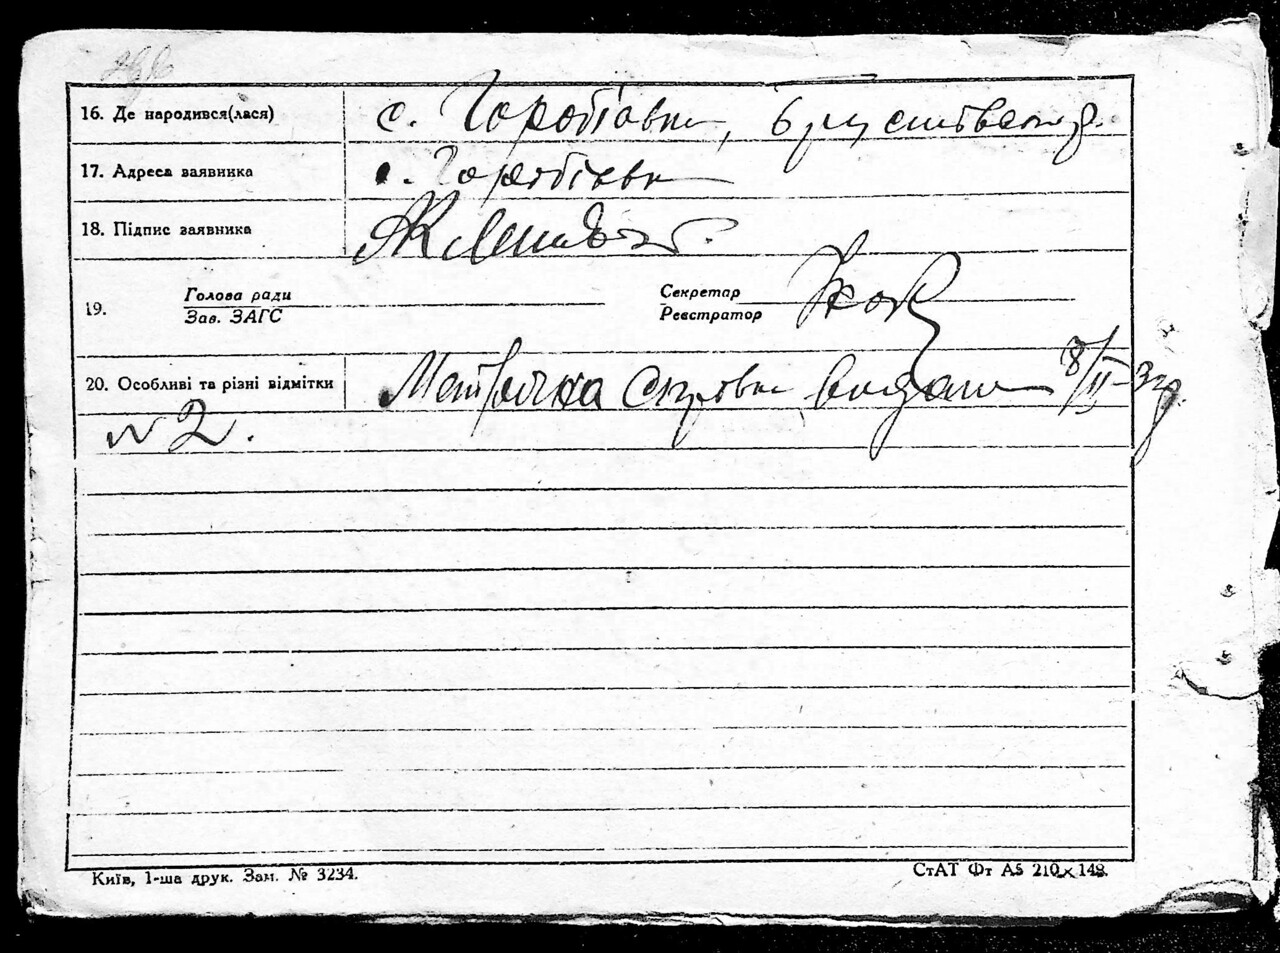 16. Де народився(лася) с. Горобіївка,
17. Адреса заявника с. Горобіївка
18. Підпис заявника
Голова ради Секретар
19.
Зав. ЗАГС Реєстратор
20. Особливі та різні відмітки Метрична видана 8/II-32р.
№ 2.
Київ, 1-ша друк. Зам. № 3234. СтАТ Фт А5 210×148.